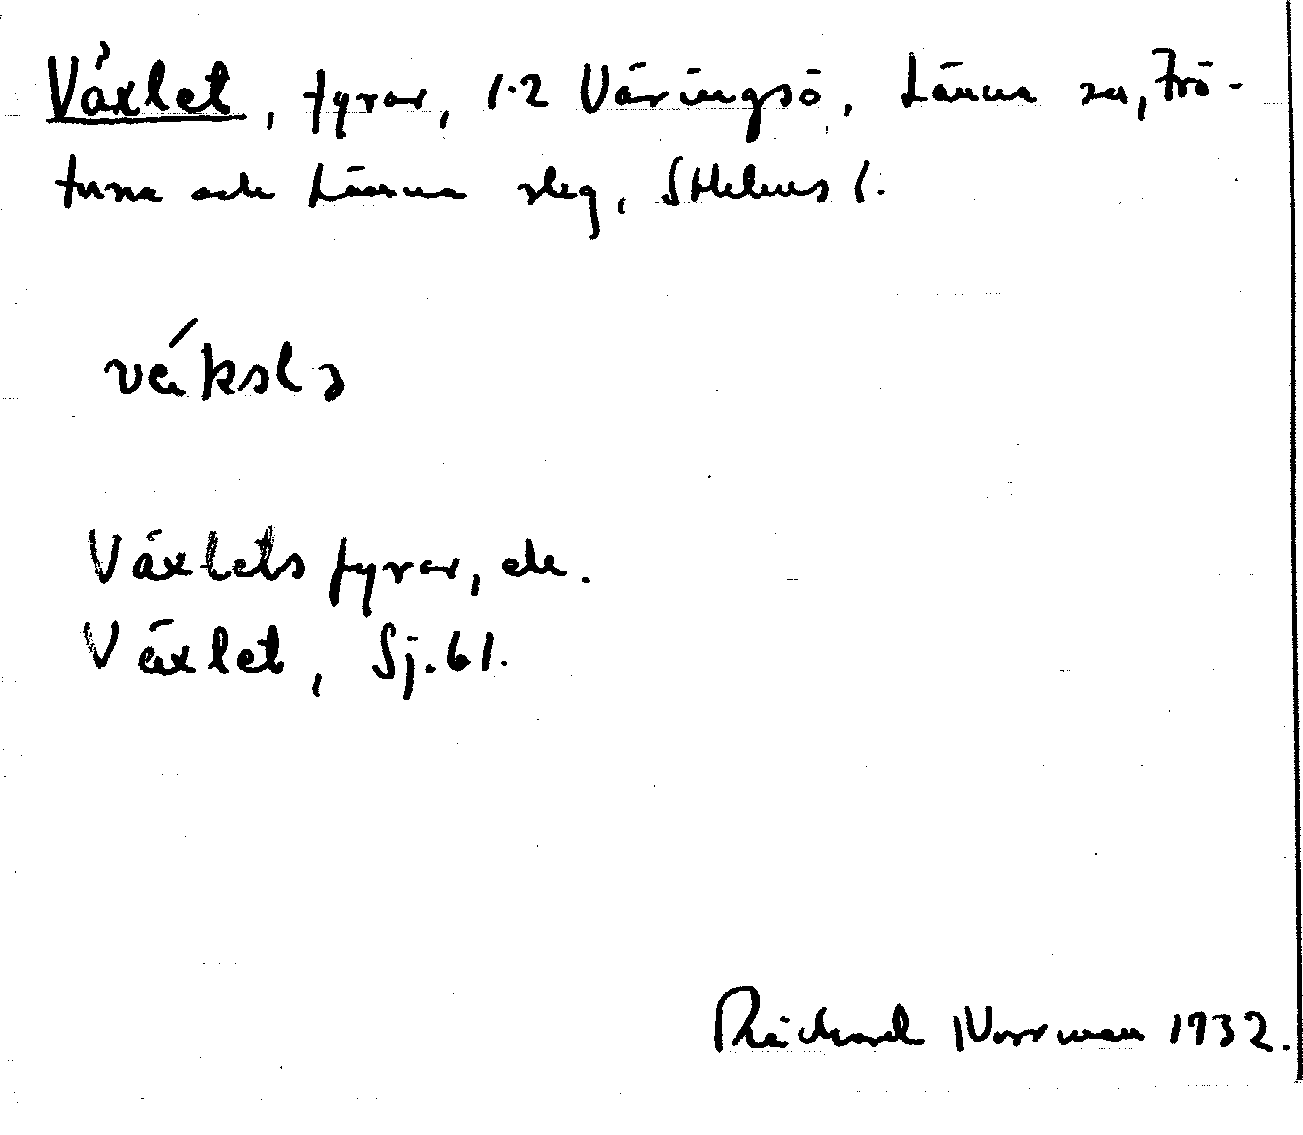 Växlet, fyrar, 1-2 Väringsö, Länna sn, Frö-
tuna och Länna slg, Sthlms l.
vä́kslə
Växlets fyrar, ek.
Växlet, Sj. 61.
Rickard Norrman 1932.